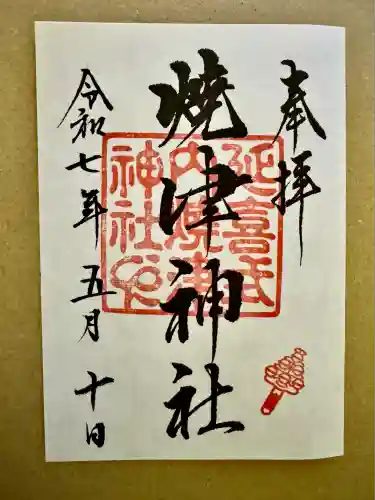 奉拝
焼津神社
令和七年五月十日
延喜式
内焼津
神社之